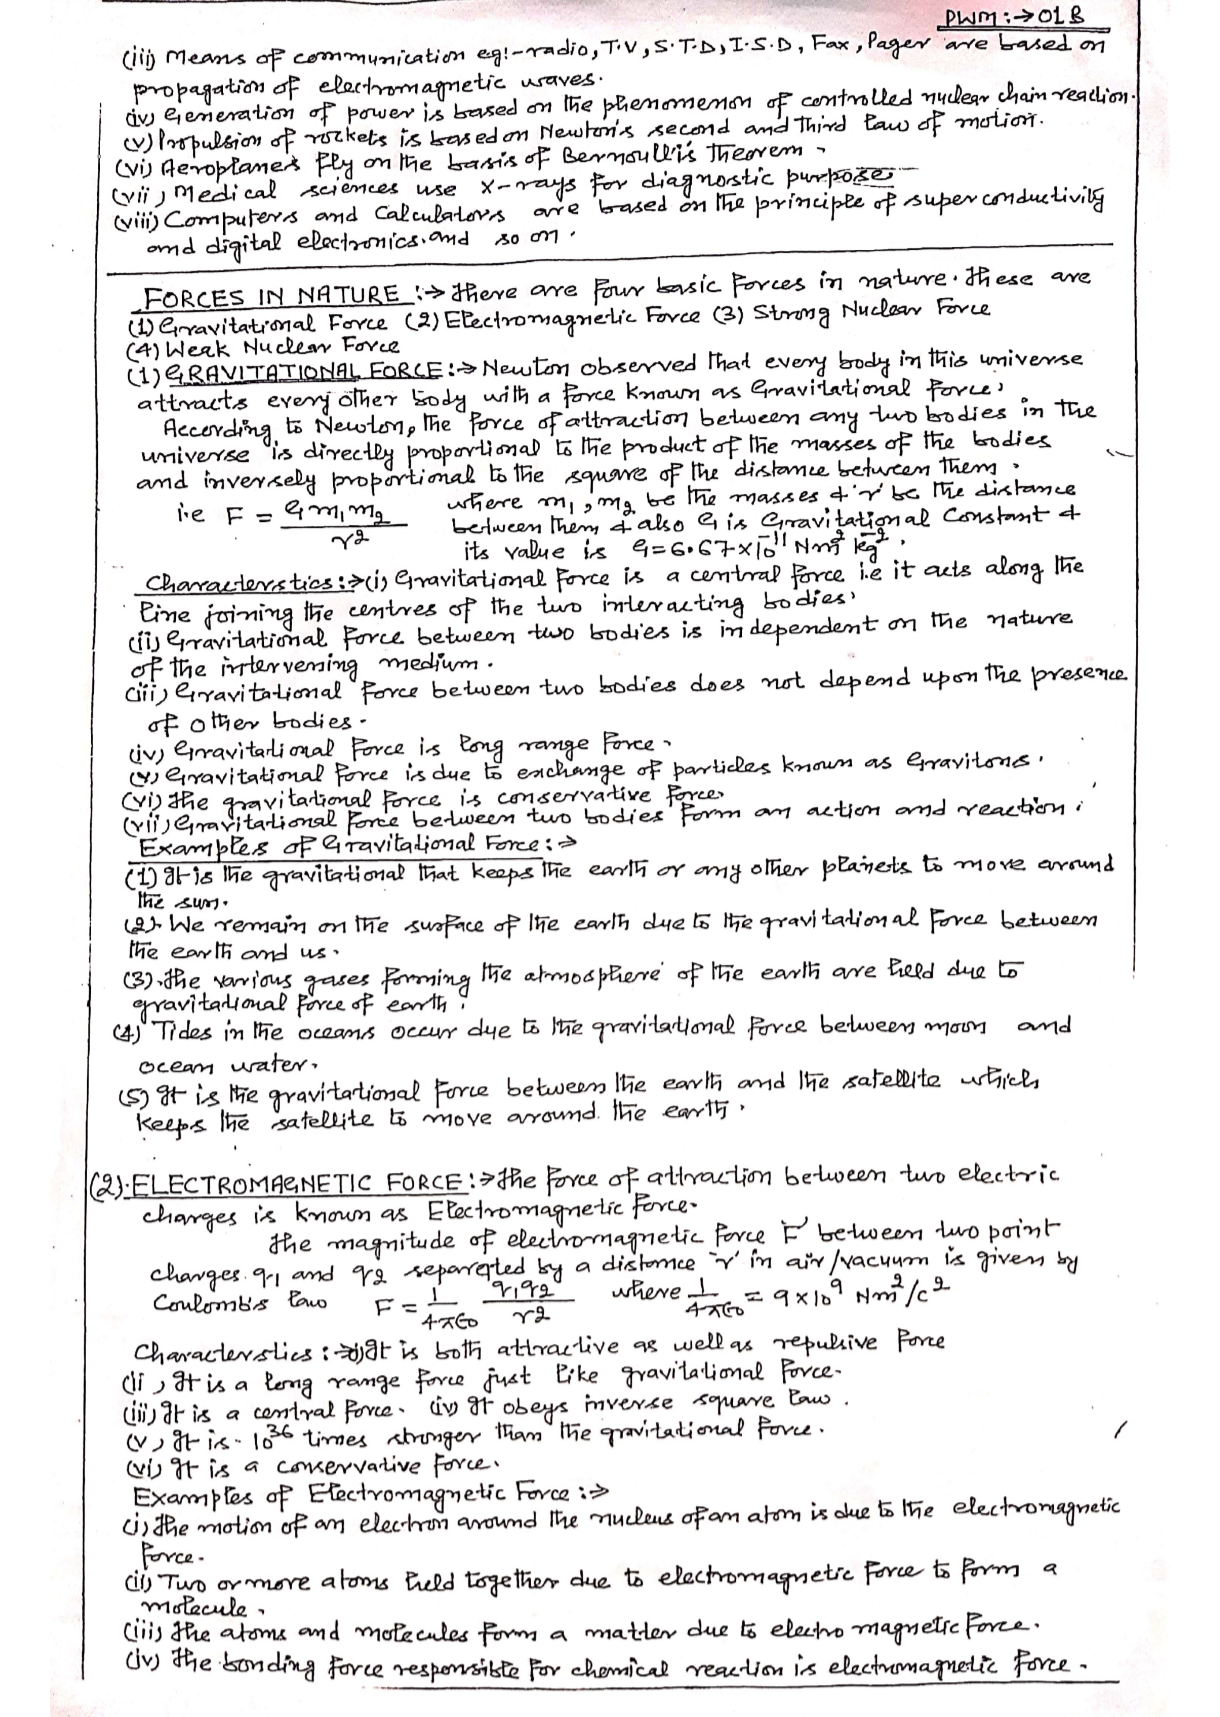 PWM:→01B
(iii) Means of communication eg:-radio, T.V, S.T.D, I.S.D, Fax, Pager are based on
propagation of electromagnetic waves.
(iv) Generation of power is based on the phenomenon of controlled nuclear chain reaction.
(v) Propulsion of rockets is based on Newton's second and third law of motion.
(vi) Aeroplanes fly on the basis of Bernoulli's Theorem.
(vii) Medical sciences use X-rays for diagnostic purpose
(viii) Computers and Calculators are based on the principle of super conductivity
and digital electronics. and so on.
FORCES IN NATURE :→ There are four basic forces in nature. These are
(1) Gravitational Force (2) Electromagnetic Force (3) Strong Nuclear Force
(4) Weak Nuclear Force
(1) GRAVITATIONAL FORCE :→ Newton observed that every body in this universe
attracts every other body with a force known as Gravitational force.
According to Newton, the force of attraction between any two bodies in the
universe is directly proportional to the product of the masses of the bodies
and inversely proportional to the square of the distance between them.
i.e F = Gm₁m₂/r² where m₁, m₂ be the masses & 'r' be the distance
between them & also G is Gravitational Constant &
its value is G=6.67×10⁻¹¹ Nm² kg⁻².
Characterstics :→ (i) Gravitational Force is a central force i.e it acts along the
line joining the centres of the two interacting bodies.
(ii) Gravitational Force between two bodies is independent on the nature
of the intervening medium.
(iii) Gravitational Force between two bodies does not depend upon the presence
of other bodies.
(iv) Gravitational Force is long range Force.
(v) Gravitational Force is due to exchange of particles known as Gravitons.
(vi) The gravitational Force is conservative force.
(vii) Gravitational Force between two bodies form an action and reaction.
Examples of Gravitational Force :→
(1) It is the gravitational that keeps the earth or any other planets to move around
the sun.
(2). We remain on the surface of the earth due to the gravitational Force between
the earth and us.
(3). The various gases forming the atmosphere of the earth are held due to
gravitational force of earth.
(4) Tides in the oceans occur due to the gravitational Force between moon and
ocean water.
(5) It is the gravitational Force between the earth and the satellite which
keeps the satellite to move around. the earth.
(2). ELECTROMAGNETIC FORCE :→ The Force of attraction between two electric
charges is known as Electromagnetic Force.
The magnitude of electromagnetic force F between two point
charges q₁ and q₂ separated by a distance 'r' in air/vacuum is given by
Coulomb's law F = 1/4πε₀ q₁q₂/r² where 1/4πε₀ = 9×10⁹ Nm²/c²
Characterstics :→ (i) It is both attractive as well as repulsive Force
(ii) It is a long range force just like gravitational Force.
(iii) It is a central Force. (iv) It obeys inverse square law.
(v) It is 10³⁶ times stronger than the gravitational Force.
(vi) It is a conservative Force.
Examples of Electromagnetic Force :→
(i) The motion of an electron around the nucleus of an atom is due to the electromagnetic
force.
(ii) Two or more atoms held together due to electromagnetic Force to form a
molecule.
(iii) The atoms and molecules form a matter due to electro magnetic Force.
(iv) The bonding force responsible for chemical reaction is electromagnetic Force.